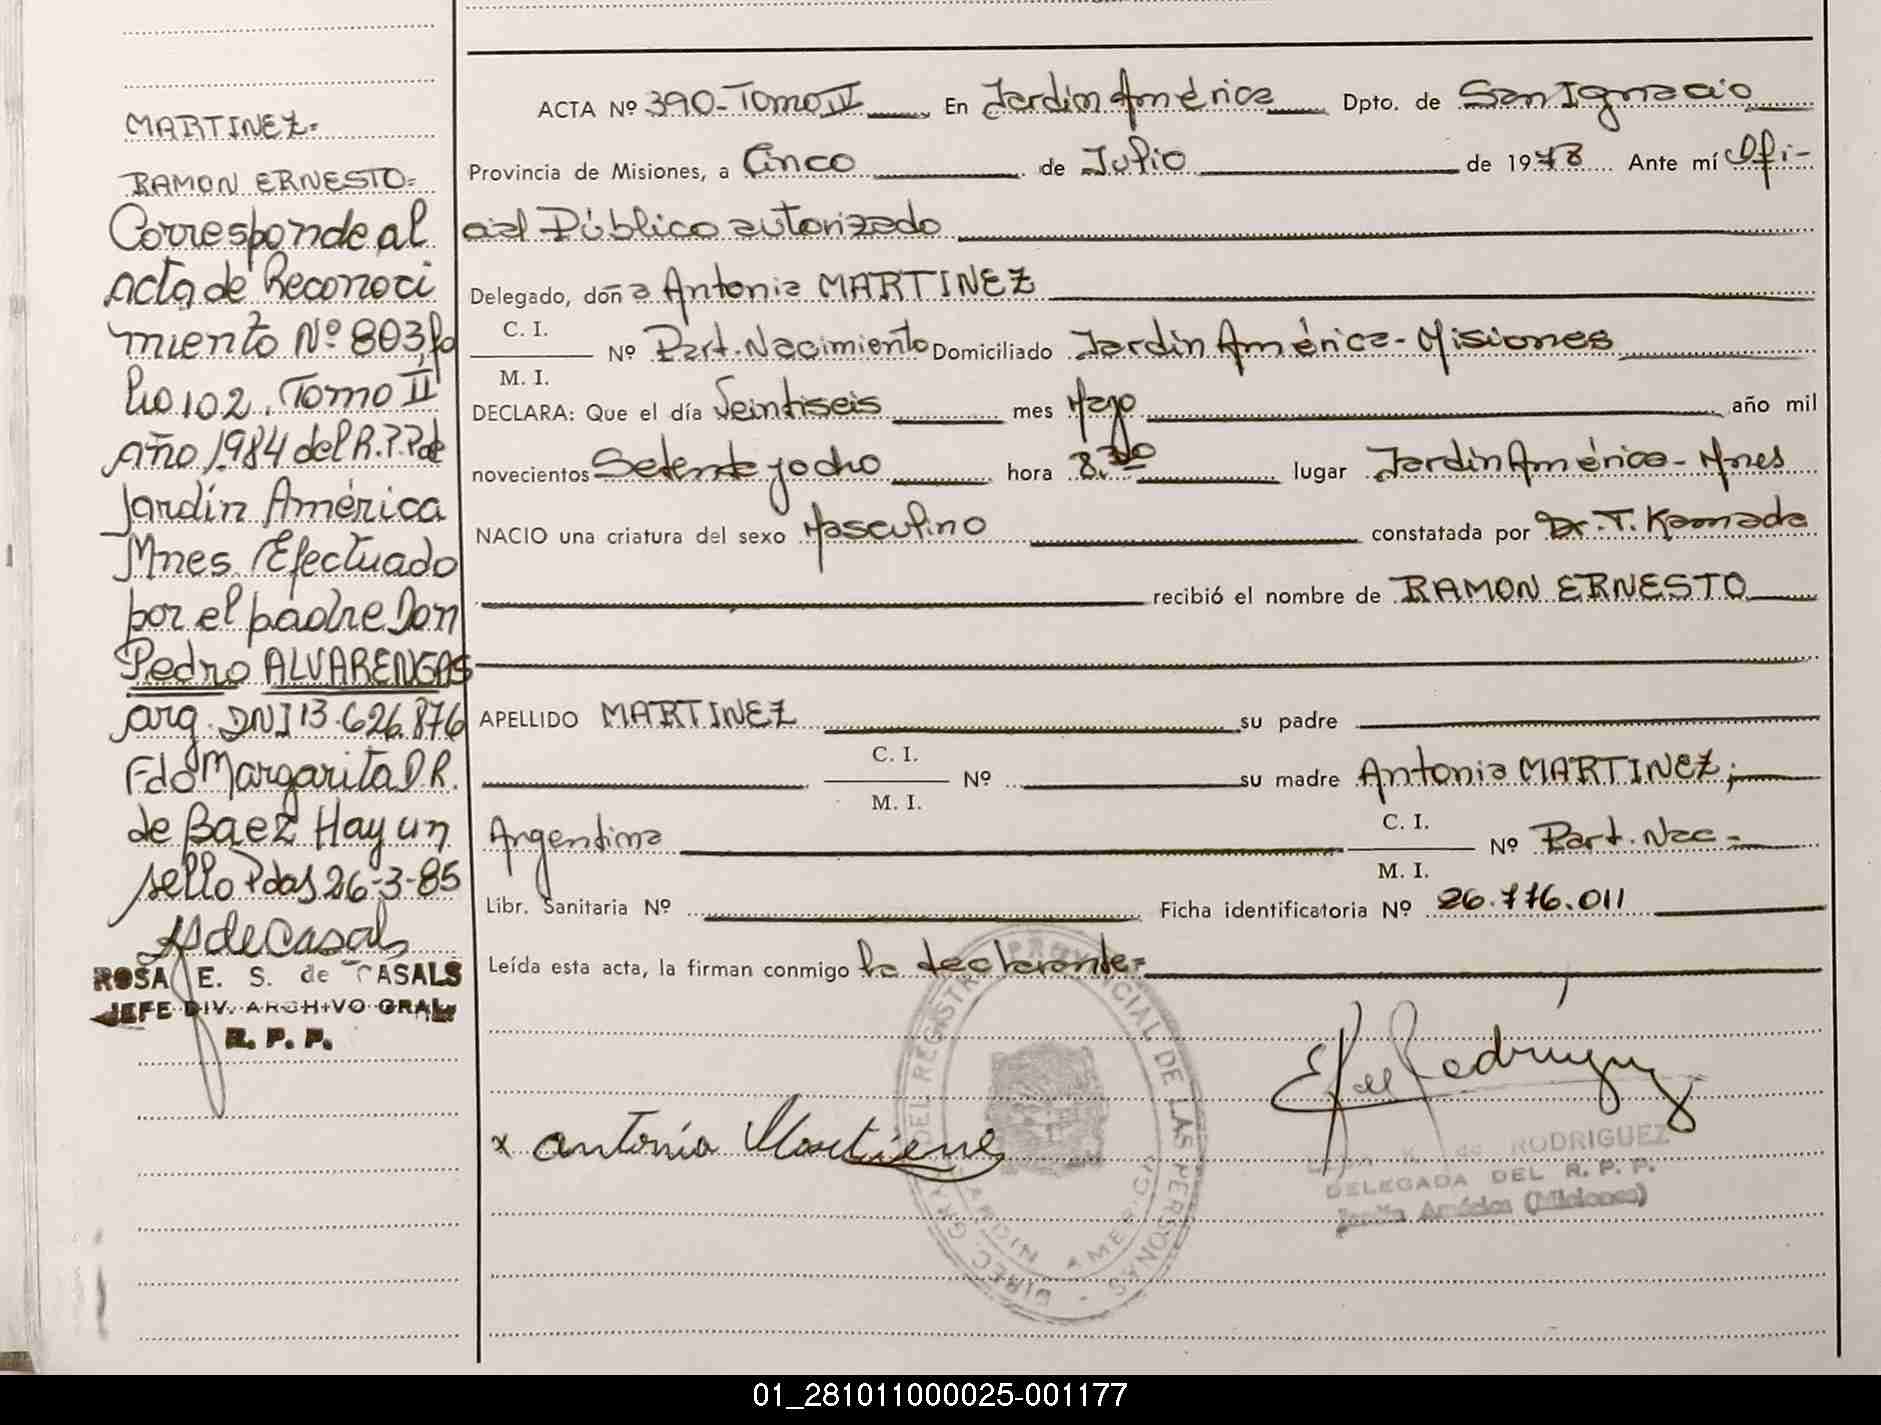 MARTINEZ=
RAMON ERNESTO=
Corresponde al
acta de Reconoci
miento Nº 803, fo
lio 102, Tomo II
año 1984 del R.P.P de
Jardín América
Mnes. Efectuado
por el padre Don
Pedro ALVARENGAS
arg. DNI 13.626.876
Fdo Margarita D R.
de Baez Hay un
sello Pdas 26-3-85
ROSA E. S. de CASALS
JEFE DIV. ARCHIVO GRAL.
R. P. P.
ACTA Nº 390-Tomo IV En Jardín América Dpto. de San Ignacio
Provincia de Misiones, a Cinco de Julio de 1978 Ante mí Ofi-
cial Público autorizado
Delegado, doña Antonia MARTINEZ
C. I.
Nº Part. Nacimiento Domiciliado Jardín América - Misiones
M. I.
DECLARA: Que el día Veintiseis mes Mayo año mil
novecientos Setenta y ocho hora 8.30 lugar Jardín América - Mnes
NACIO una criatura del sexo Masculino constatada por Dr. T. Kamada
recibió el nombre de RAMON ERNESTO
APELLIDO MARTINEZ su padre
C. I.
Nº su madre Antonia MARTINEZ;
M. I.
Argentina C. I. Nº Part. Nac=
M. I.
Libr. Sanitaria Nº Ficha identificatoria Nº 26.776.011
Leída esta acta, la firman conmigo la declarante=
x antonia Martiene
DIREC. GRAL. DEL REGISTRO PROVINCIAL DE LAS PERSONAS
AMERICA
de RODRIGUEZ
DELEGADA DEL R. P. P.
Jardín América (Misiones)
01_281011000025-001177